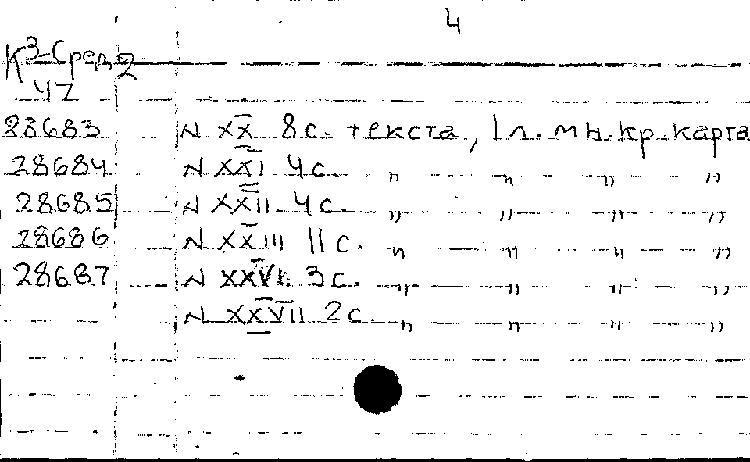 4
К 3-Сред 2
47
28683 N XX 8с. текста, 1л. мн. кр. карта
28684 N XXI 4с. „ „ „ „
28685 N XXII 4с. „ „ „ „
28686 N XXIII 11с. „ „ „ „
28687 N XXVI 3с. „ „ „ „
N XXVII 2с. „ „ „ „